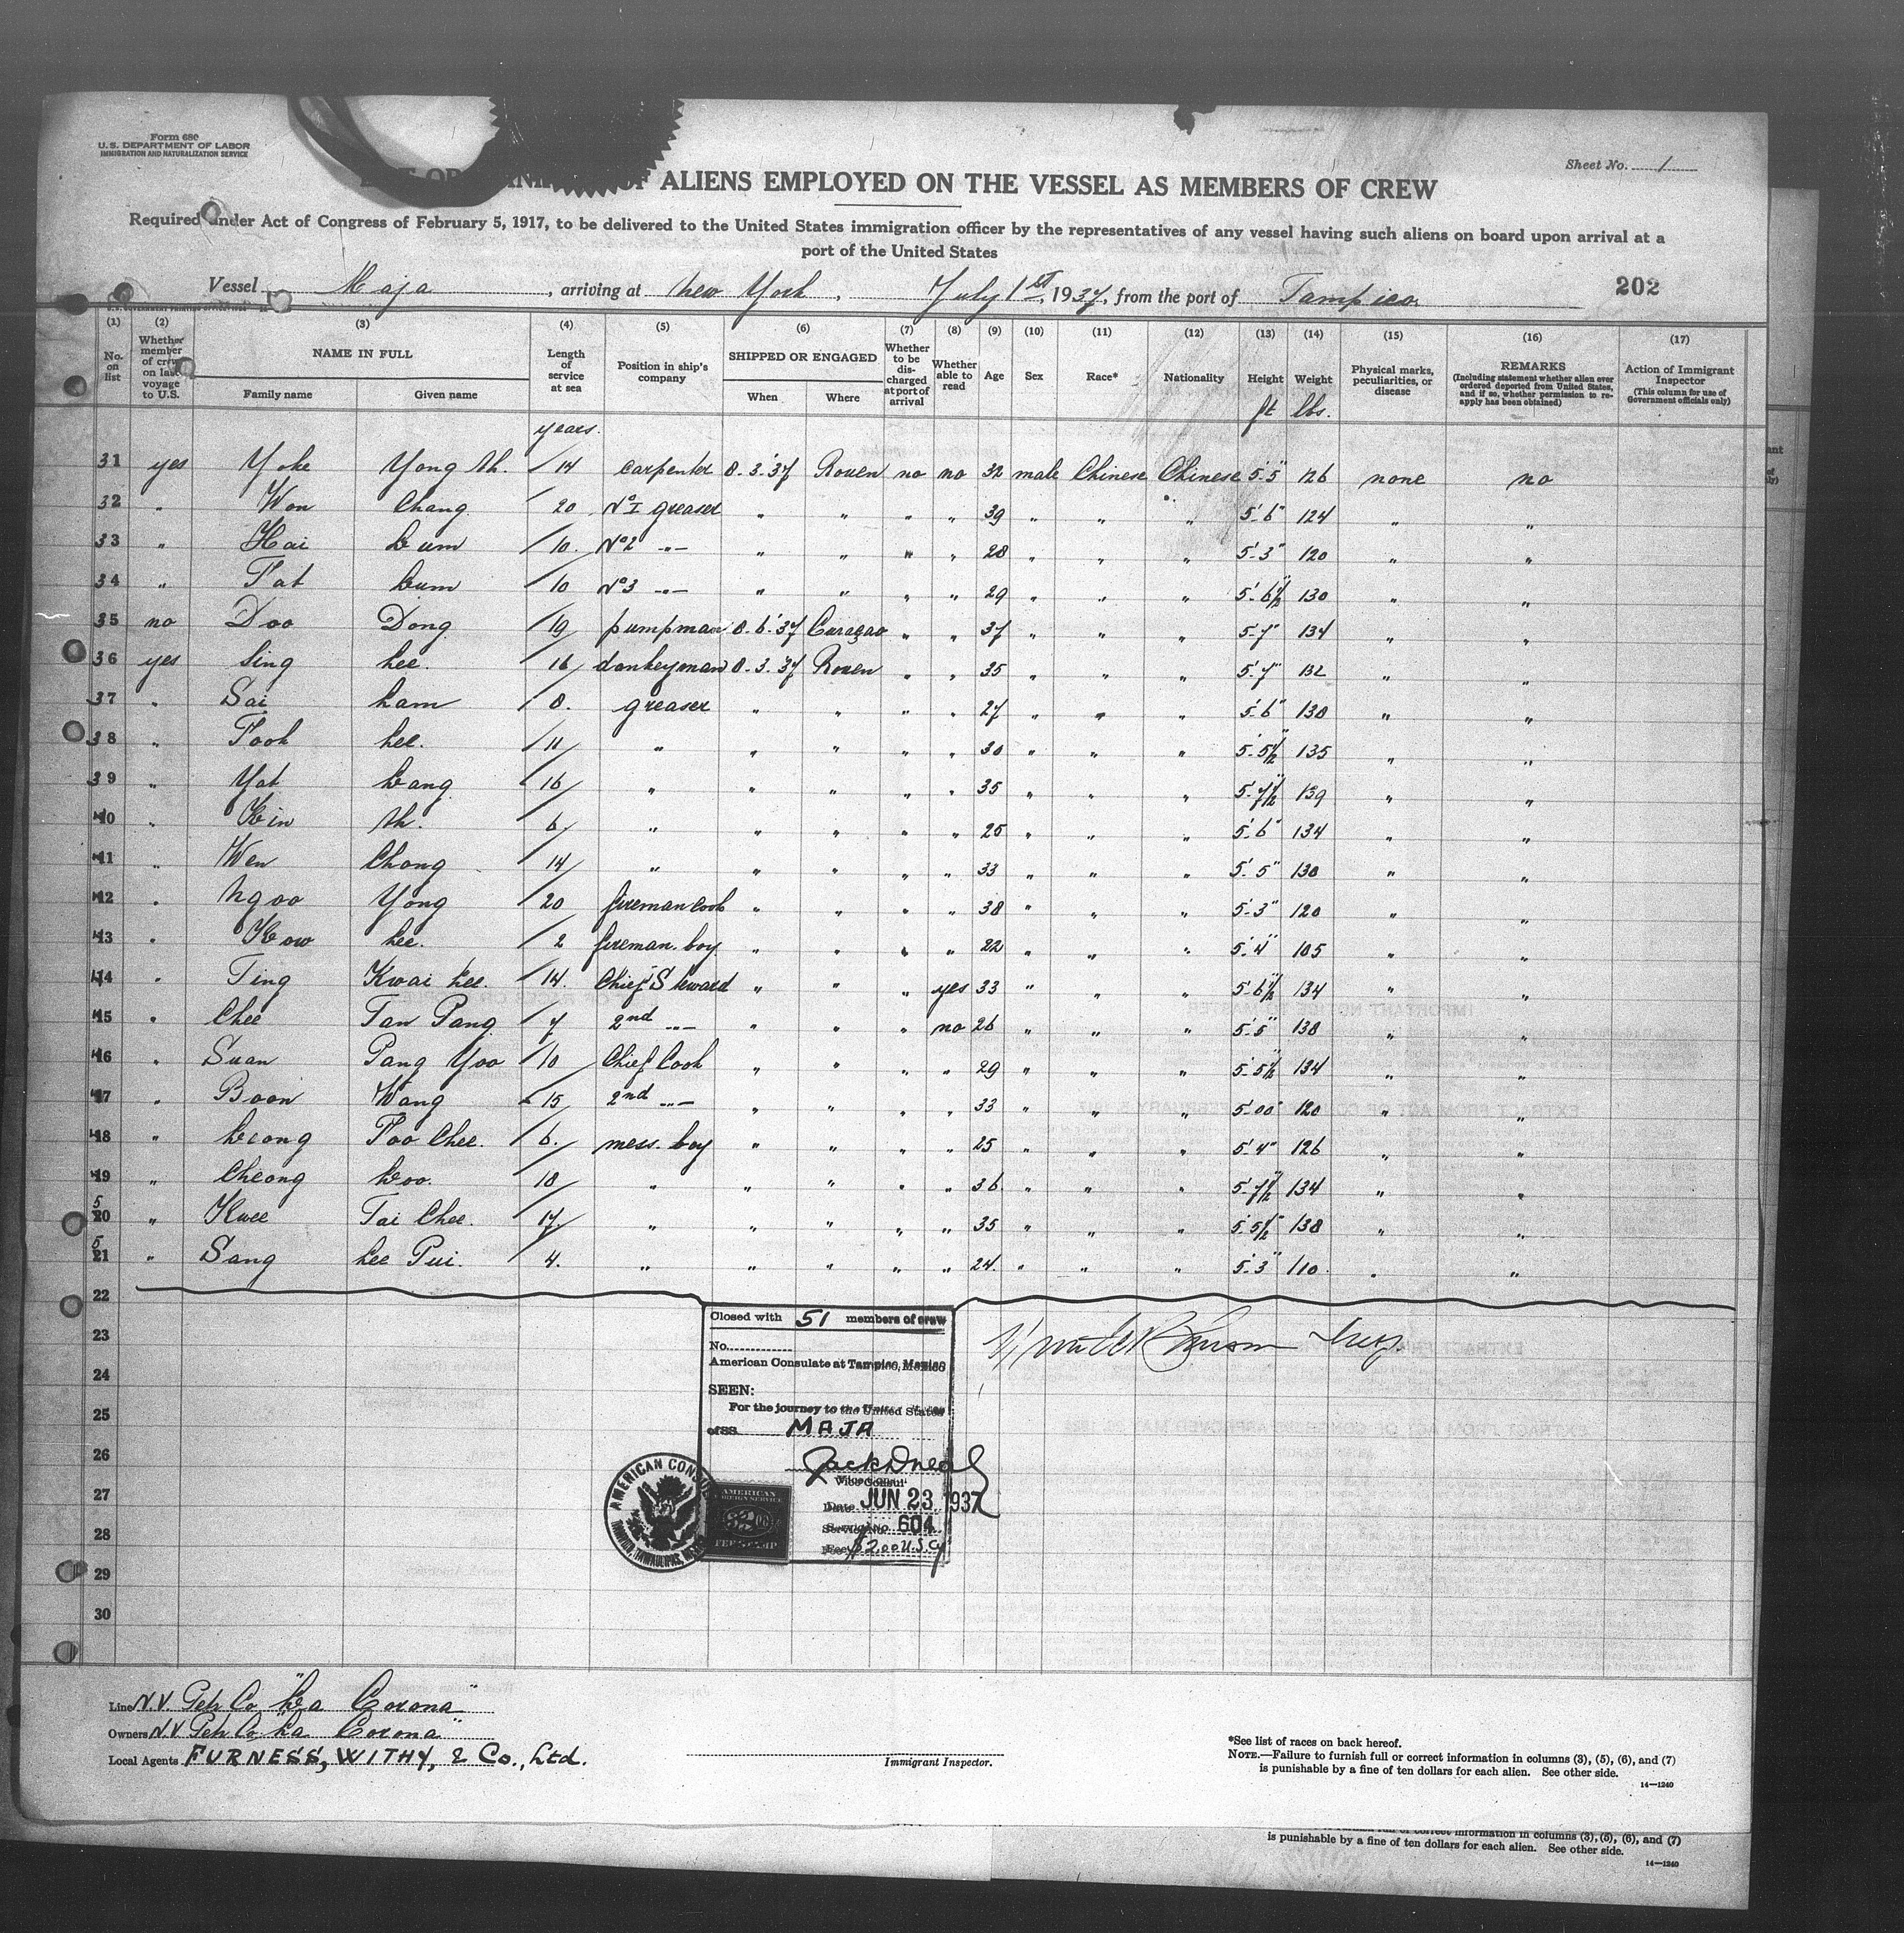 Form 680
U. S. DEPARTMENT OF LABOR
IMMIGRATION AND NATURALIZATION SERVICE
Sheet No. 1
OF ALIENS EMPLOYED ON THE VESSEL AS MEMBERS OF CREW
Required under Act of Congress of February 5, 1917, to be delivered to the United States immigration officer by the representatives of any vessel having such aliens on board upon arrival at a
port of the United States
Vessel Maja, arriving at New York, July 1st, 1937, from the port of Tampico
202
(1) (2) (3) (4) (5) (6) (7) (8) (9) (10) (11) (12) (13) (14) (15) (16) (17)
No. on list
Whether member of crew on last voyage to U.S.
NAME IN FULL
Family name Given name
Length of service at sea
Position in ship's company
SHIPPED OR ENGAGED
When Where
Whether to be discharged at port of arrival
Whether able to read
Age
Sex
Race*
Nationality
Height
Weight
Physical marks, peculiarities, or disease
REMARKS
(Including statement whether alien ever ordered deported from United States, and if so, whether permission to reapply has been obtained)
Action of Immigrant Inspector
(This column for use of Government officials only)
years. ft lbs.
31 yes Yoke Yong Ah. 14 carpenter 8.3.'37 Rouen no no 32 male Chinese Chinese 5'-5" 126 none no
32 " Won Chang 20 No I greaser " " " " 39 " " " 5'-6" 124 " "
33 " Hai Lum 10. No 2 -"- " " " " 28 " " " 5'-3" 120 " "
34 " Fat Lum 10 No 3 -"- " " " " 29 " " " 5'-6½" 130 " "
35 no Doo Dong 19 pumpman 8.6.'37 Curaçao " " 37 " " " 5'-7" 134 " "
36 yes Sing Lee. 16 donkeyman 8.3.'37 Rouen " " 35 " " " 5'-7" 132 " "
37 " Sai Lam 8. greaser " " " " 27 " " " 5'-6" 130 " "
38 " Fook Lee. 11 " " " " " 30 " " " 5'-5½" 135 " "
39 " Yat Lang 16 " " " " " 35 " " " 5'-7½" 139 " "
40 " Kin Ah. 6 " " " " " 25 " " " 5'-6" 134 " "
41 " Wen Chong 14 " " " " " 33 " " " 5'-5" 130 " "
42 " Ngoo Yong 20 fireman cook " " " " 38 " " " 5'-3" 120 " "
43 " Kow Lee. 2 fireman. boy " " " " 22 " " " 5'-4" 105 " "
44 " Ting Kwai Lee. 14. Chief Steward " " " yes 33 " " " 5'-6½" 134 " "
45 " Chee Tan Pang 7 2nd -"- " " " no 26 " " " 5'-5" 138 " "
46 " Suan Pang Yoo 10 Chief Cook " " " " 29 " " " 5'-5½" 134 " "
47 " Boon Wang 15 2nd -"- " " " " 33 " " " 5'-00" 120 " "
48 " Leong Foo Chee. 6. mess. boy " " " " 25 " " " 5'-4" 126 " "
49 " Cheong Loo. 18 " " " " " 36 " " " 5'-7½" 134 " "
50 " Kwee Tai Chee. 17 " " " " " 35 " " " 5'-5½" 138 " "
51 " Sang Lee Pui. 4. " " " " " 24. " " " 5'-3" 110. " "
22
23
24
25
26
27
28
29
30
Closed with 51 members of crew
No.
American Consulate at Tampico, Mexico
SEEN:
For the journey to the United States
of SS. MAJA
Jack D Neal
Vice Consul
Date JUN 23 1937
Service No. 604
Fee $2.00 U.S. Cy
AMERICAN CONSULATE
TAMPICO, TAMAULIPAS, MEXICO
AMERICAN
FOREIGN SERVICE
FEE STAMP
Line N.V. Petr Co "La Corona"
Owners N.V. Petr Co. "La Corona"
Local Agents FURNESS, WITHY, & Co., Ltd.
Immigrant Inspector.
*See list of races on back hereof.
NOTE.—Failure to furnish full or correct information in columns (3), (5), (6), and (7)
is punishable by a fine of ten dollars for each alien. See other side.
14—1240
full or correct information in columns (3), (5), (6), and (7)
is punishable by a fine of ten dollars for each alien. See other side.
14—1240